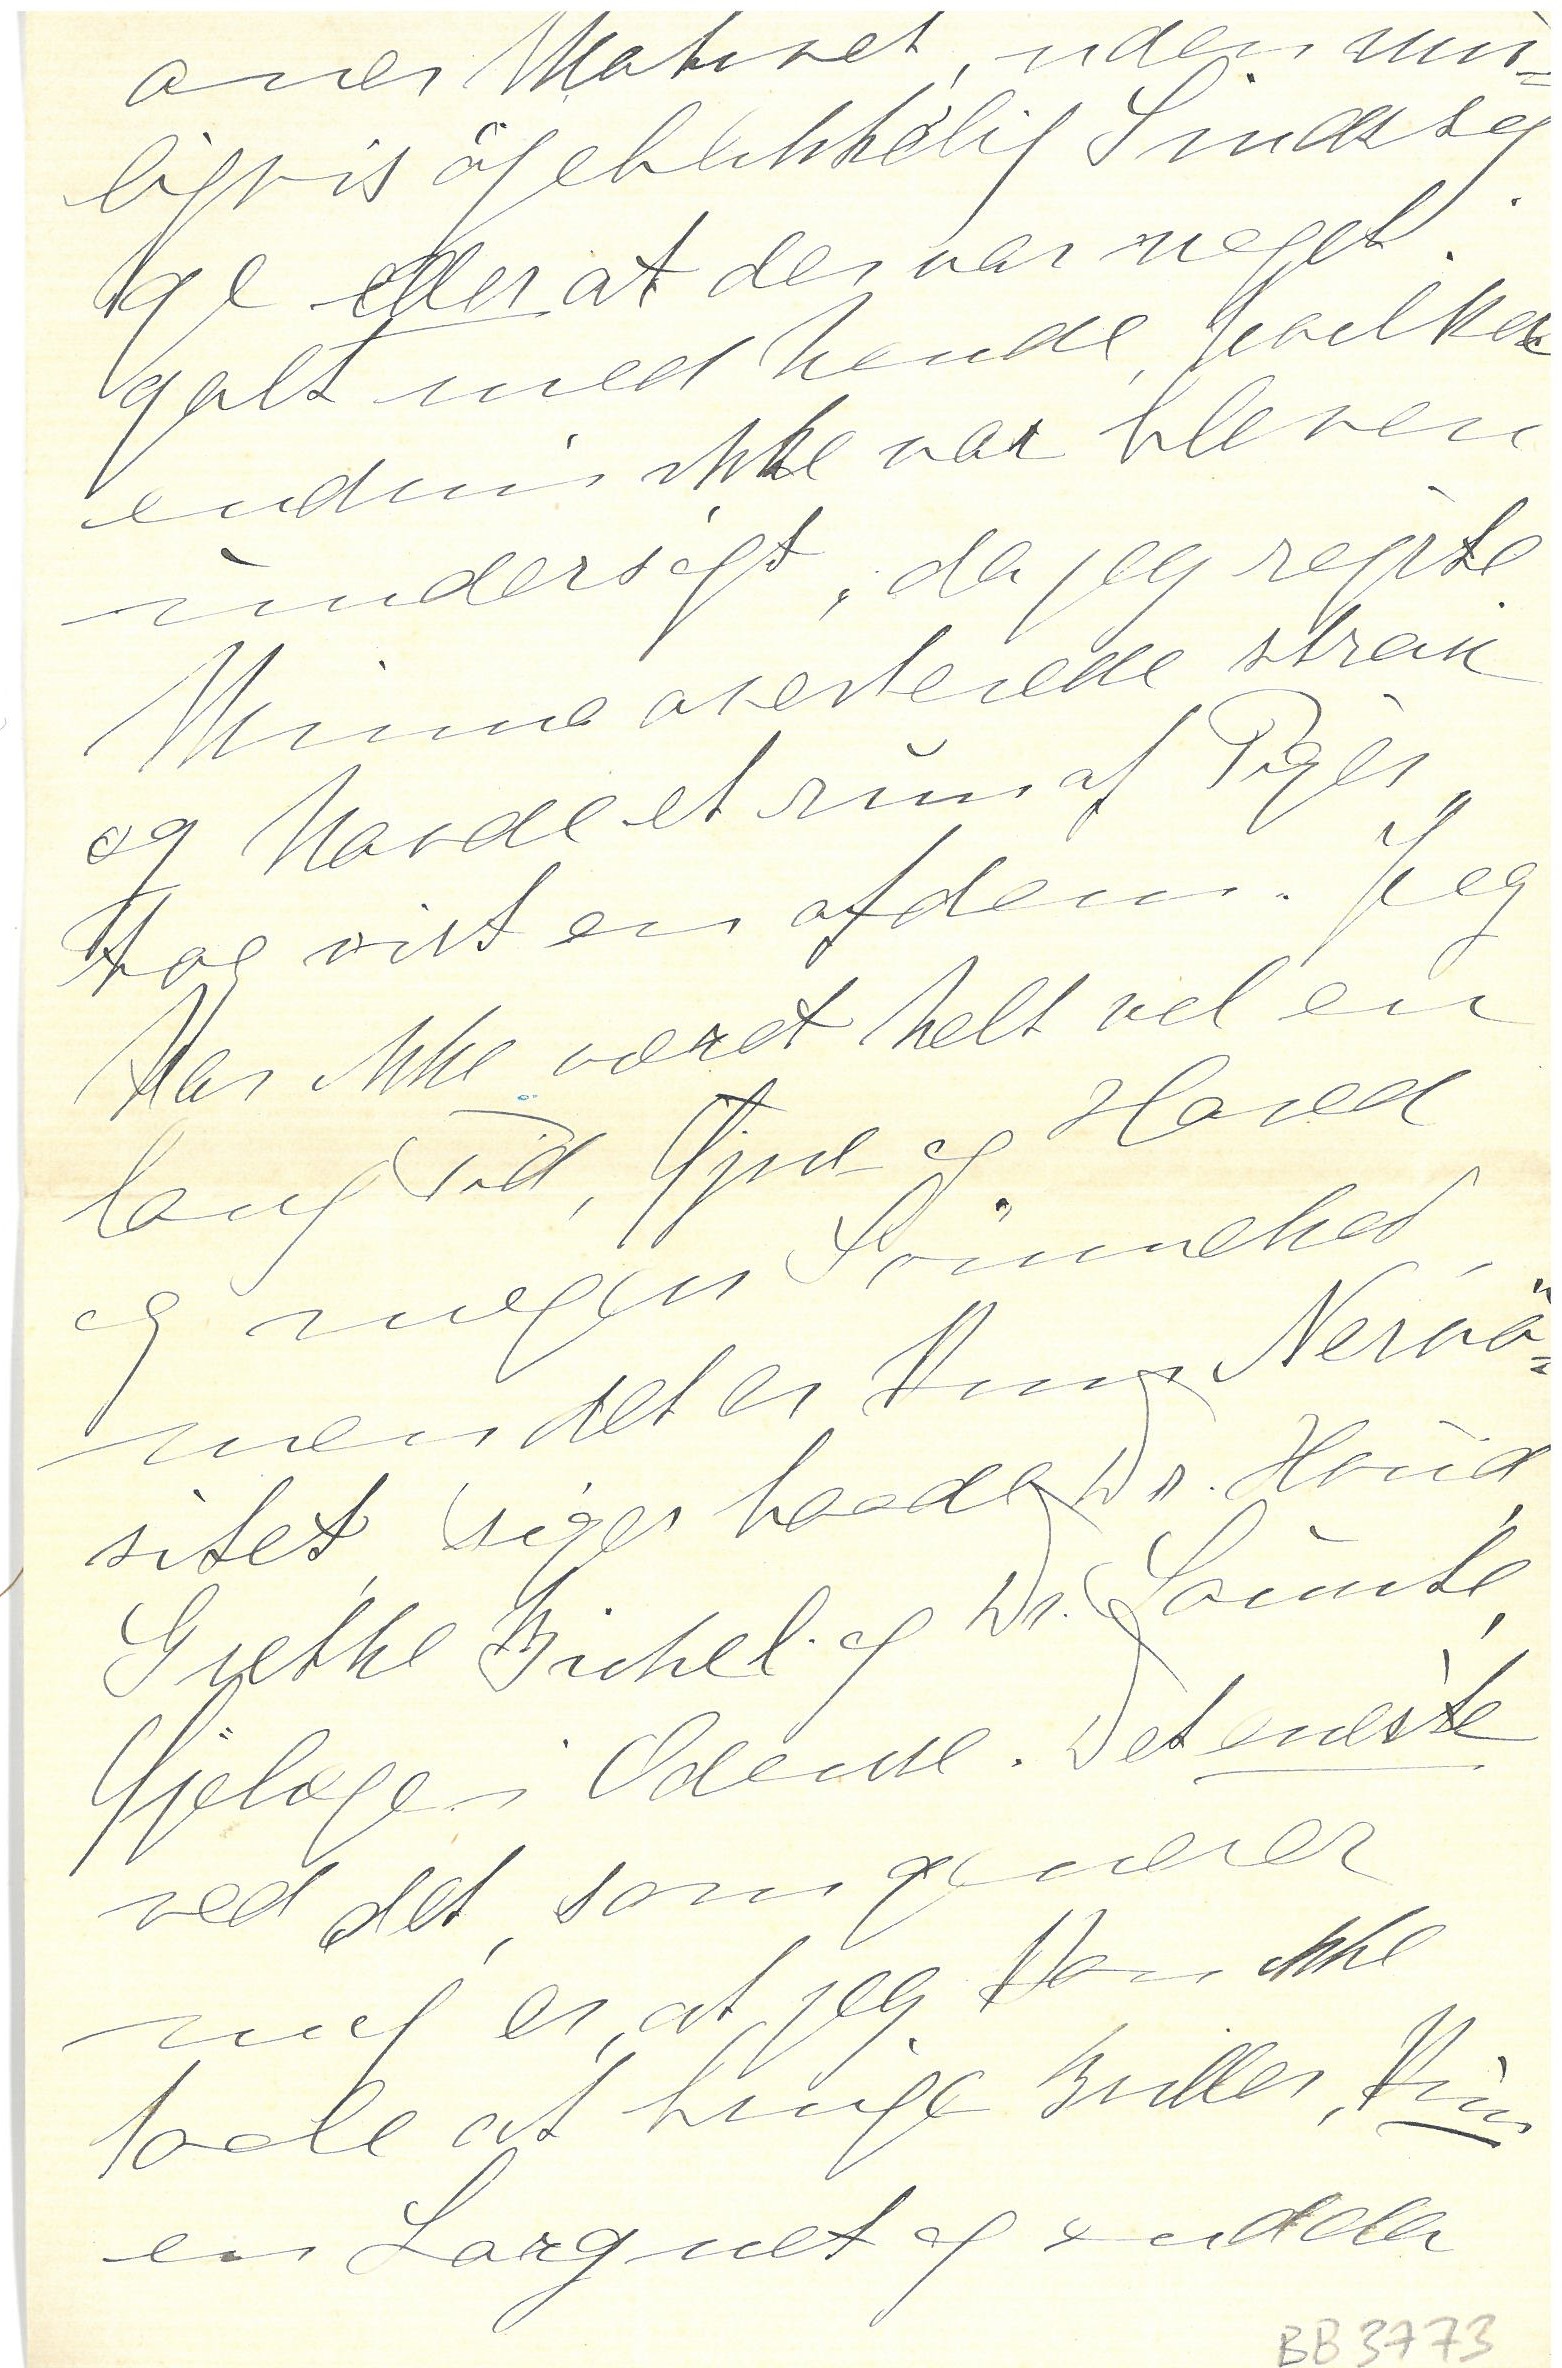 over Motivet, uden mu-
ligvis øjeblikkelig Sindssy
ge eller at der var noget
galt med hende, hvilket
endnu ikke var bleven
undersøgt, da jeg rejste
Minna averterede strax
og havde et rum af Piger,
tog vist en af dem. Jeg
har ikke været helt vel en
lang Tid, Øjne og Hoved
og megen Svimmelhed,
men det er kun Nervø-
sitet, siger baade Dr. Hvid,
Grethe Bichel og Dr.
Øjelæge i Odense. Det eneste
ved det, som generer
mig er, at jeg kan ikke
taale at bruge Briller, kun
en Lorgnet og endda
BB 3773